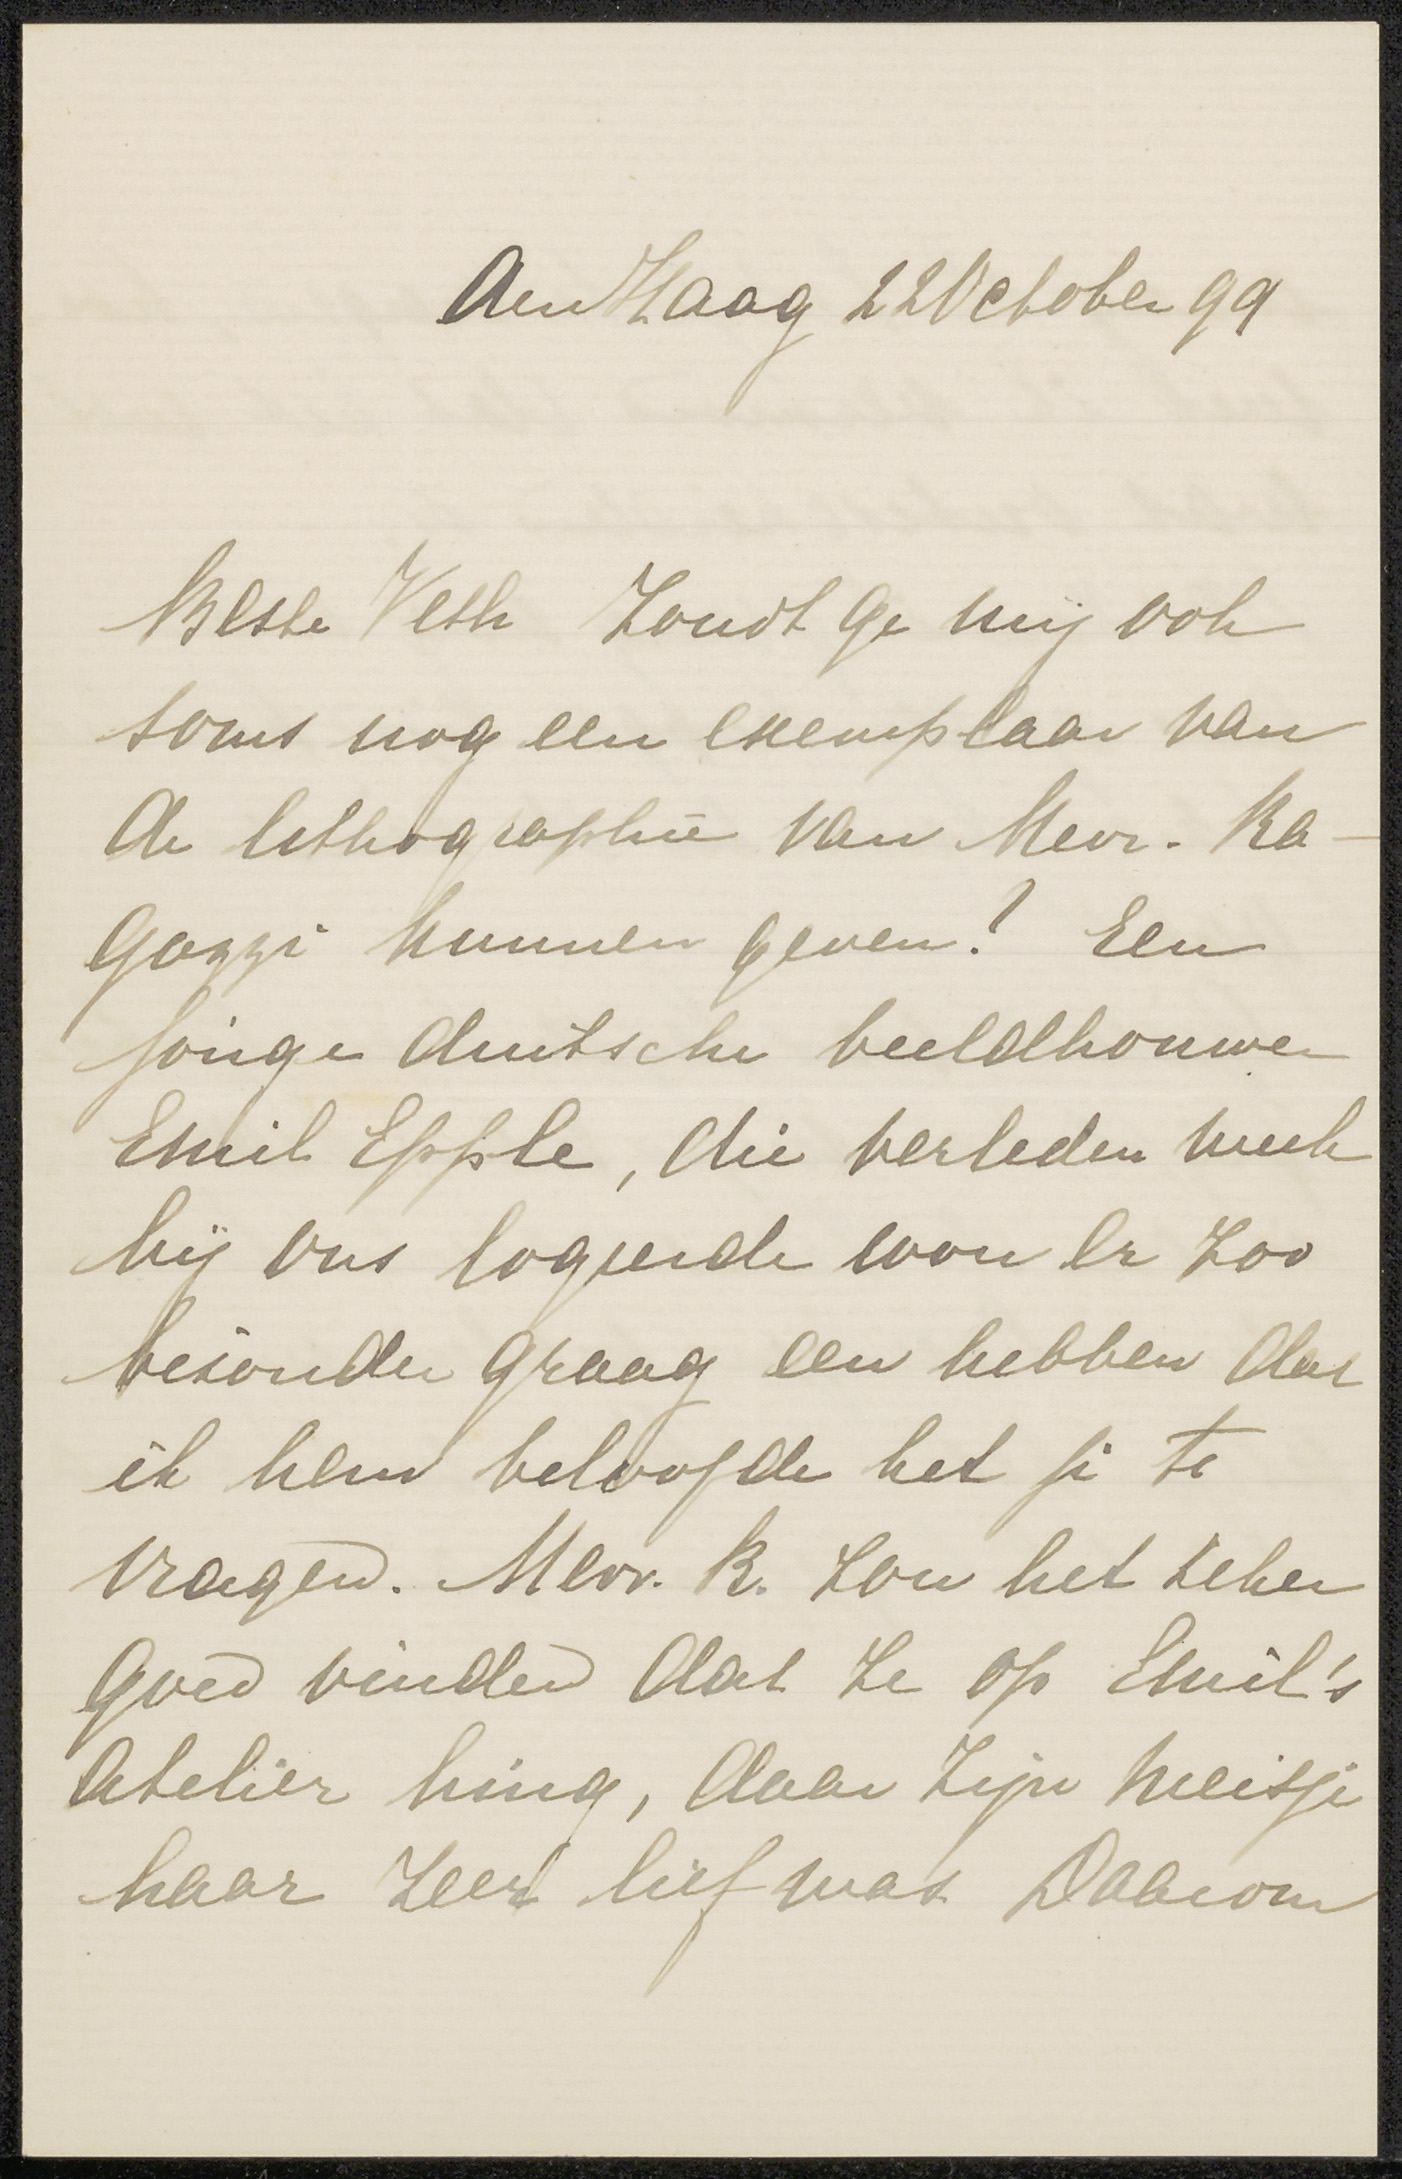 den Haag 22 October 99
Beste Veth Zoudt ge mij ook
soms nog een exemplaar van
de lithographie van Mevr. Ra-
gazzi kunnen geven? Een
jonge duitsche beeldhouwer
Emil Epple, die verleden week
bij ons logeerde wou er zoo
besonder graag een hebben dat
ik hem beloofde het je te
vragen. Mevr. R. zou het zeker
goed vinden dat ze op Emil's
atelier hing, daar zijn meisje
haar zeer lief was Daarom